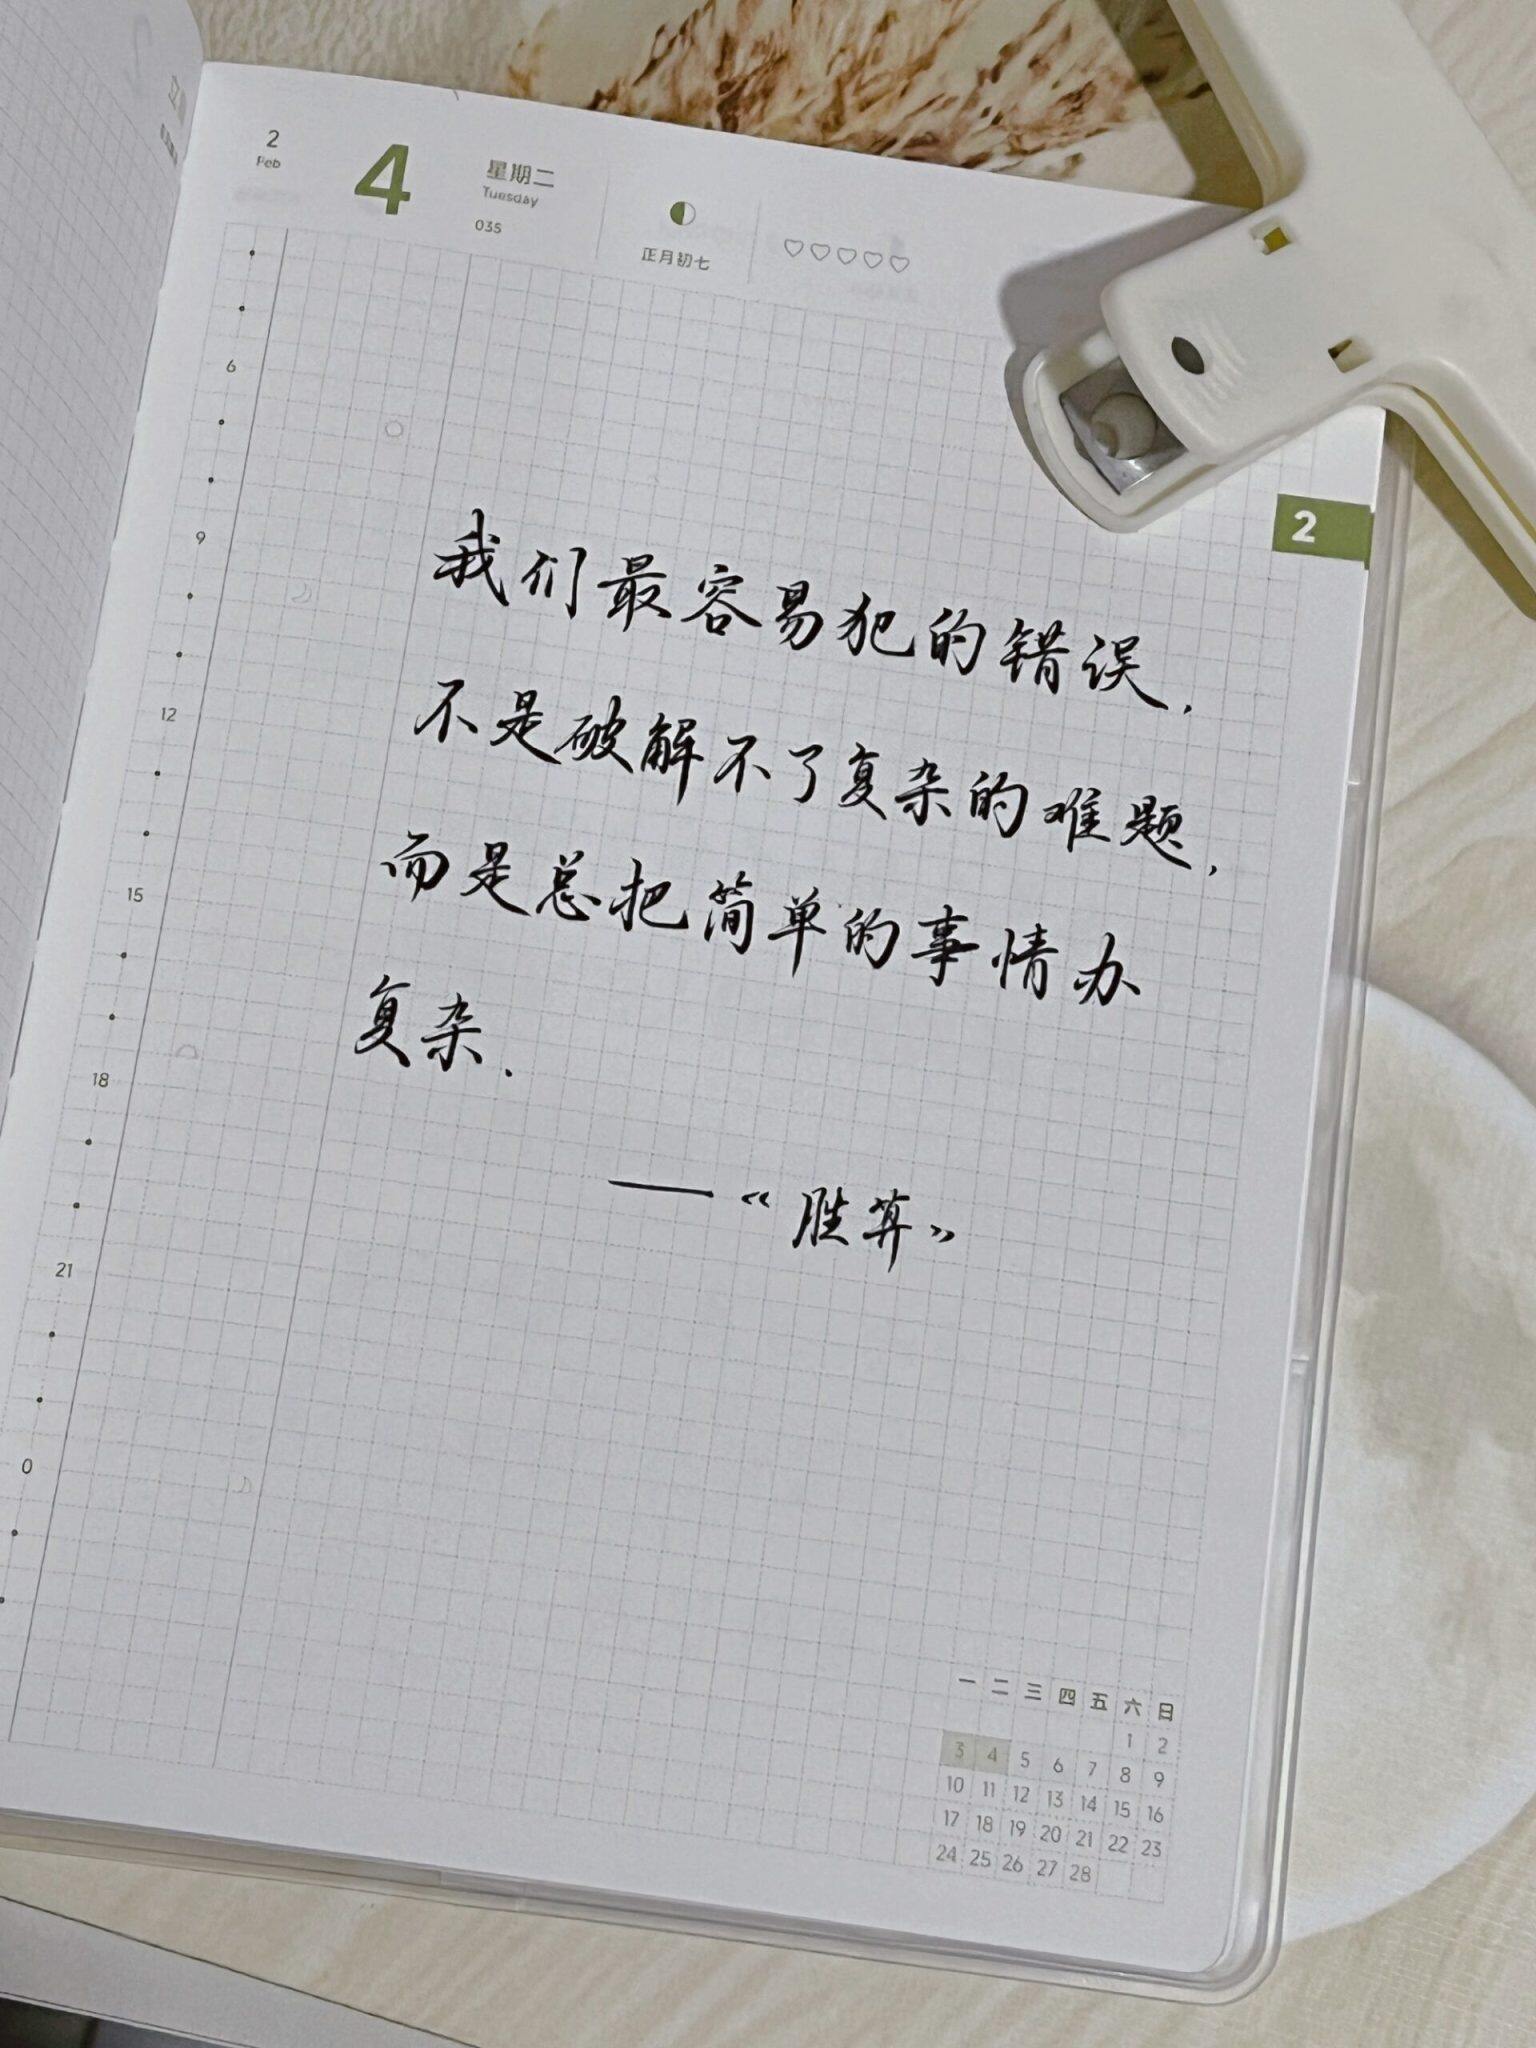 2
Feb
4
星期二
Tuesday
035
正月初七
6
9
12
15
18
21
0
2
我们最容易犯的错误,
不是破解不了复杂的难题,
而是总把简单的事情办
复杂.
——《胜算》
一 二 三 四 五 六 日
1 2
3 4 5 6 7 8 9
10 11 12 13 14 15 16
17 18 19 20 21 22 23
24 25 26 27 28